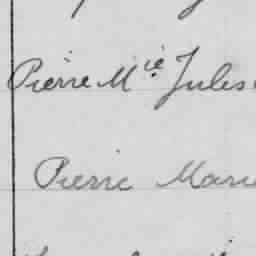 Pierre Mie Jules
Pierre Marie